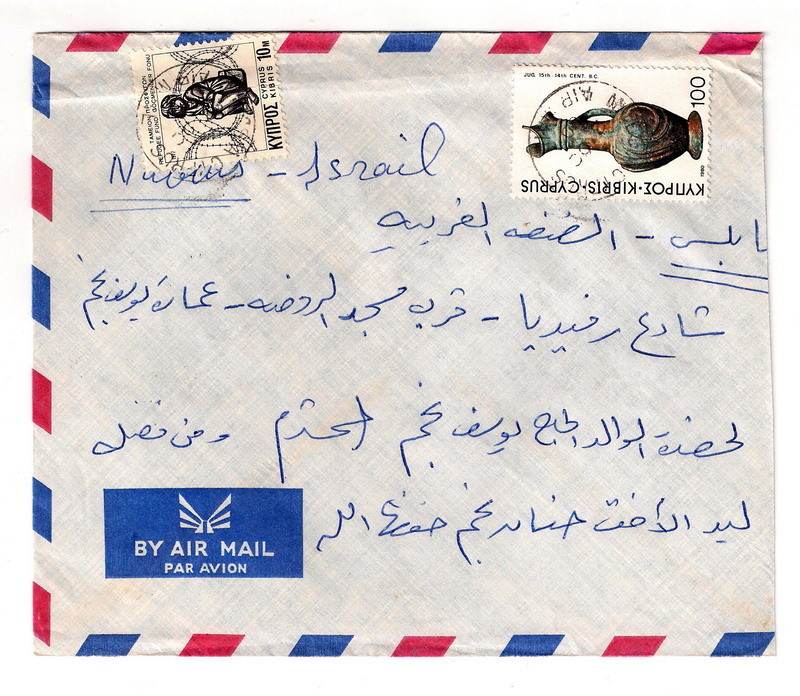 ΤΑΜΕΙΟΝ ΠΡΟΣΦΥΓΩΝ
REFUGEE FUND GÖÇMENLER FONU
10M
ΚΥΠΡΟΣ CYPRUS KIBRIS
JUG. 15th-14th CENT. B.C.
100
1980
ΚΥΠΡΟΣ·KIBRIS·CYPRUS
AIR
- Israil
نابلس - الضفه الغربيه
شارع رفيديا - قرب مسجد الروضه - عمارة يوسف نجم
لحضرة الوالد الحاج يوسف نجم المحترم ومن فضله
ليد الأخت حنان نجم حفظها الله
BY AIR MAIL
PAR AVION